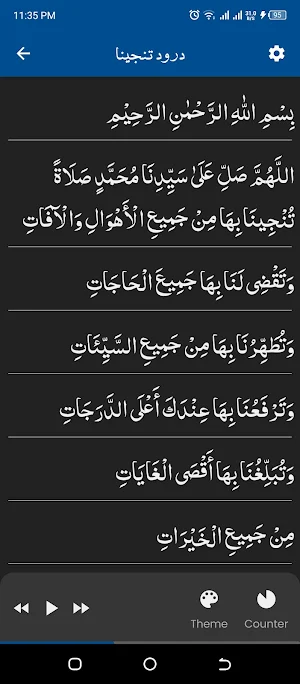 11:35 PM
31.0 B/s
95
درود تنجینا
بِسْمِ اللّٰهِ الرَّحْمٰنِ الرَّحِيْمِ
اللّٰهُمَّ صَلِّ عَلَىٰ سَيِّدِنَا مُحَمَّدٍ صَلَاةً
تُنْجِينَا بِهَا مِنْ جَمِيعِ الْأَهْوَالِ وَالْآفَاتِ
وَتَقْضِى لَنَا بِهَا جَمِيعَ الْحَاجَاتِ
وَتُطَهِّرُنَا بِهَا مِنْ جَمِيعِ السَّيِّئَاتِ
وَتَرْفَعُنَا بِهَا عِنْدَكَ أَعْلَى الدَّرَجَاتِ
وَتُبَلِّغُنَا بِهَا أَقْصَى الْغَايَاتِ
مِنْ جَمِيعِ الْخَيْرَاتِ
Theme Counter